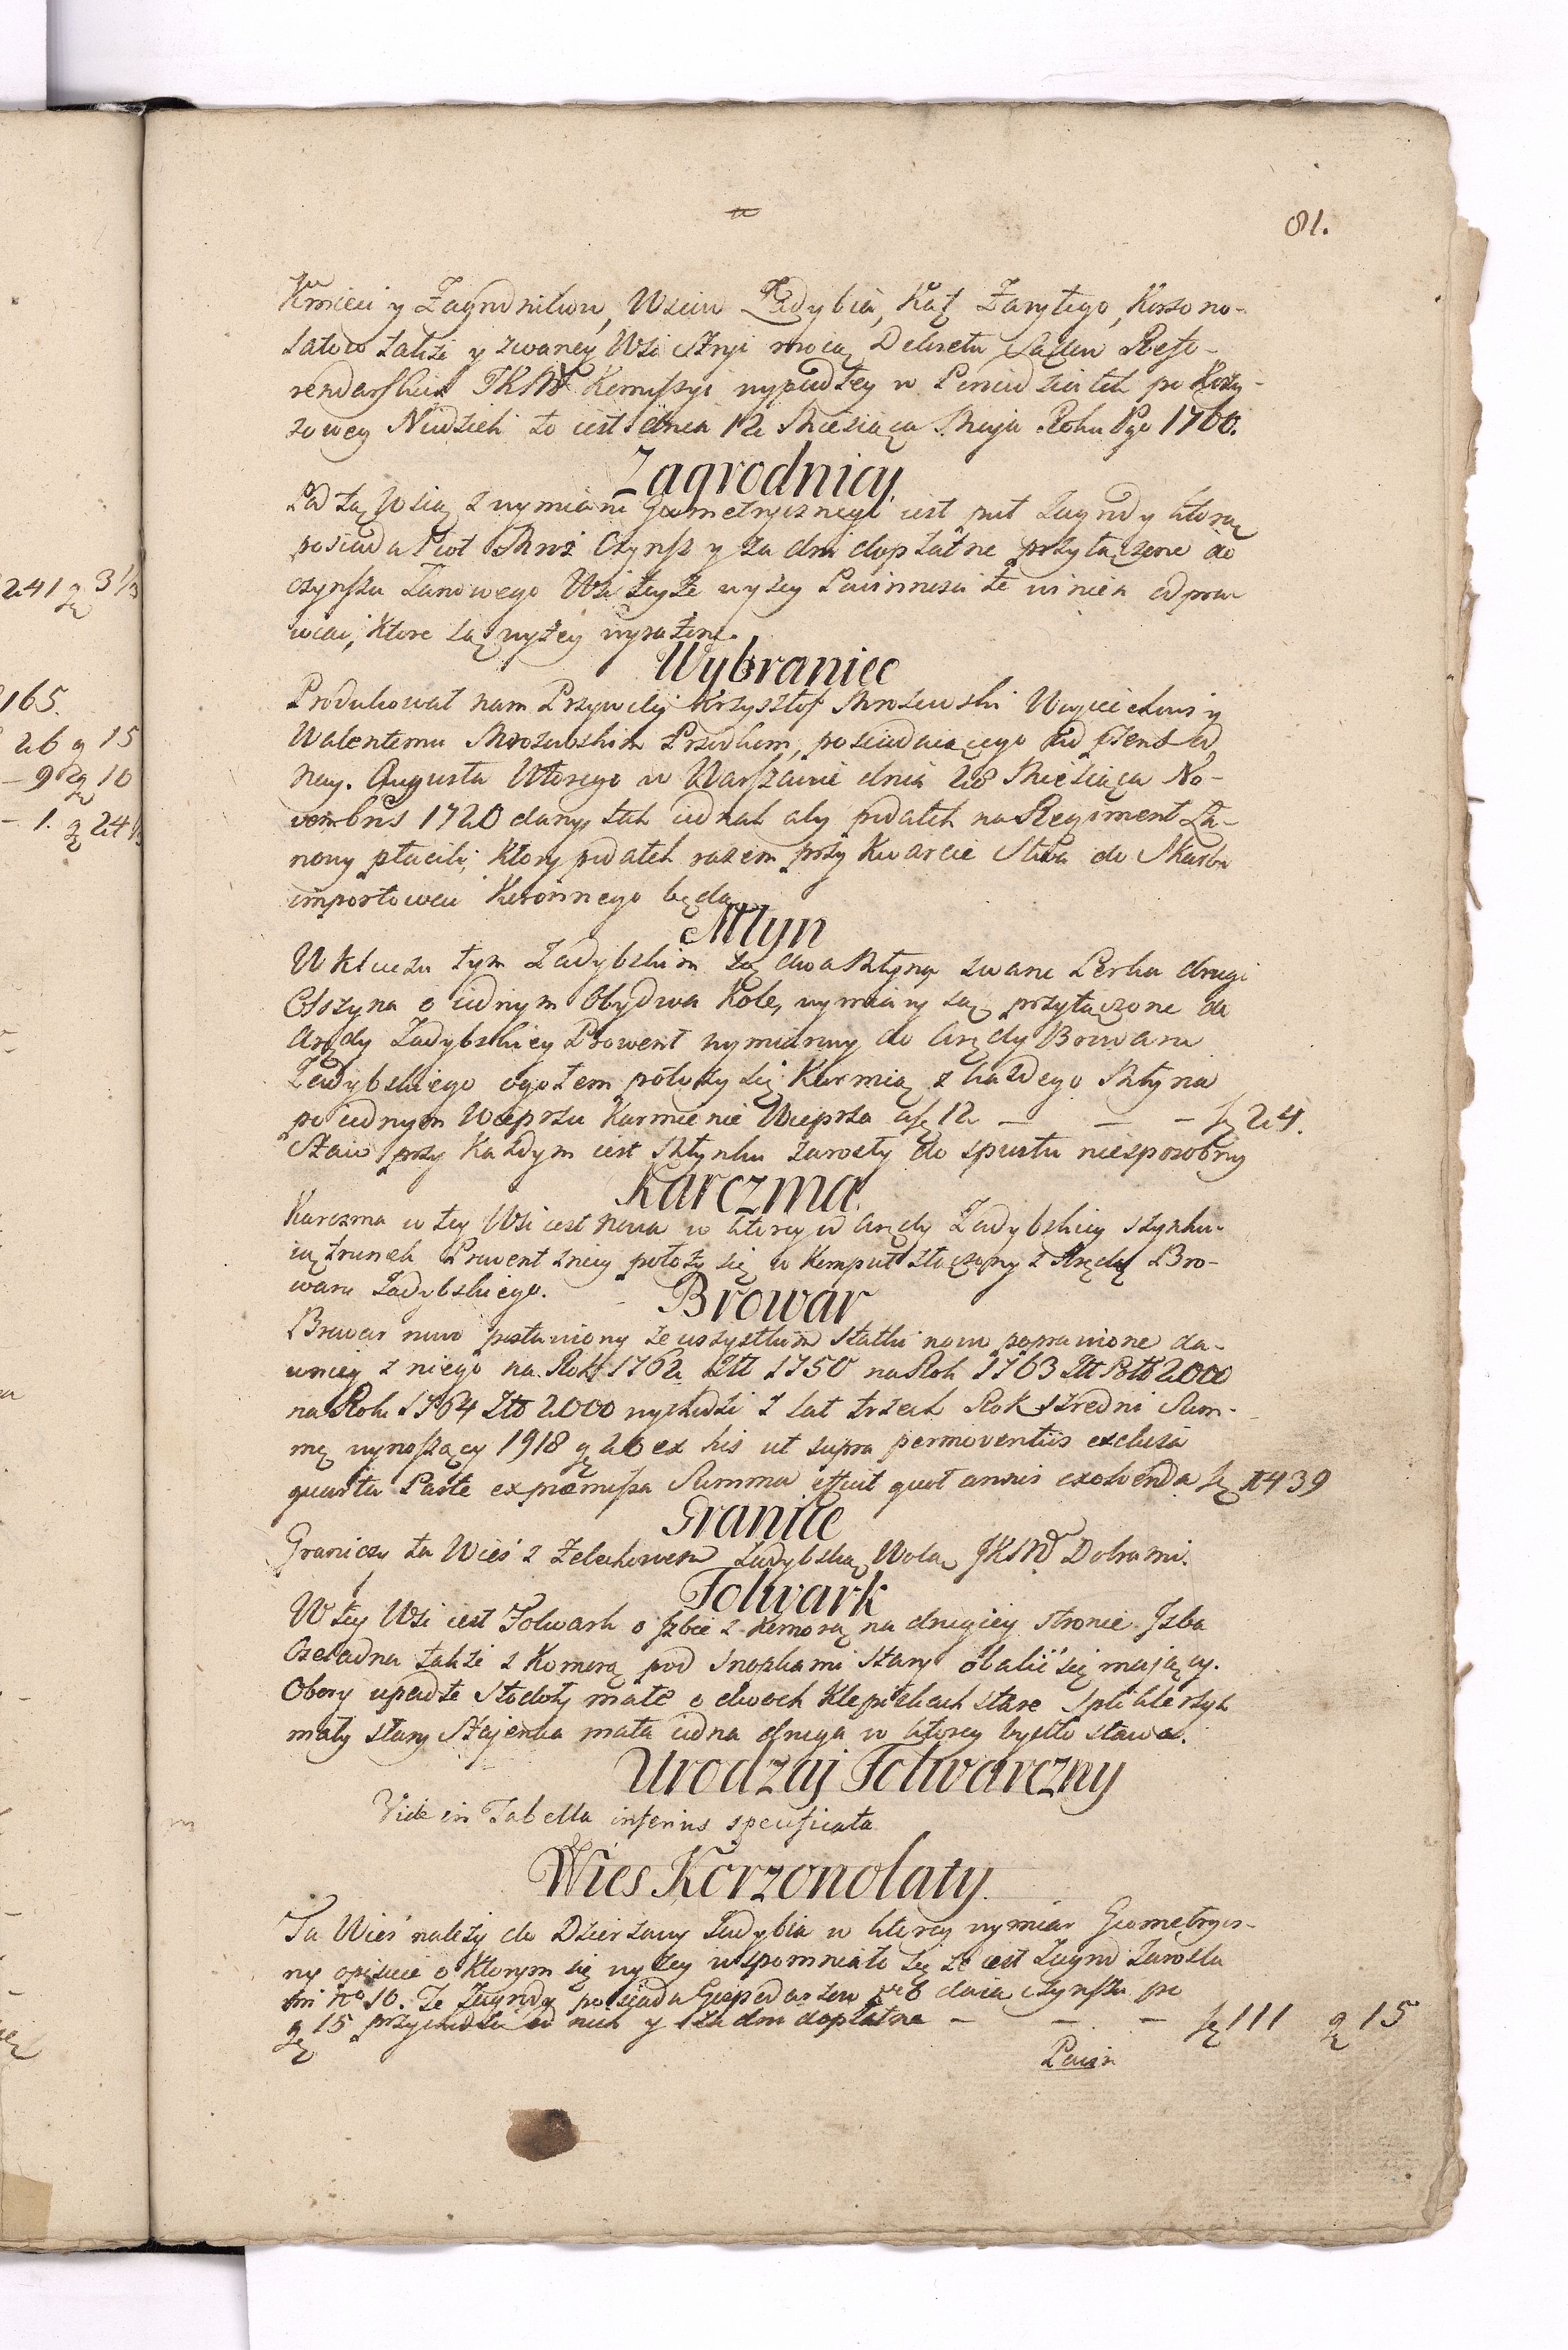 81.
Kmieci y Zagrodnikow, Wsciw Zadybia, Kąt Zarytego, Korzono-
łatow także y zwaney Wsi Stryi mocą Dekretu Sądow Refe-
rendarskich JKMci Kommissyi wypadłey w Poniedziałek po Krzy-
zowey Niedzieli to iest dnia 12 Miesiąca Maja Roku Pgo 1760.
Zagrodnicy
Pod tą Wsią z wymiaru Geometrycznego iest puł Zagrody którą
posiada Piotr Mroz Czynsz y za dni dopłatne przyłączone do
czynszu Łanowego Wsi teyże wyzey Powinnosci te winien odpra
wiać, które są wyżey wyrażone.
Wybraniec
Produkował nam Przywiley Krzysztof Mrozowski Woyciechowi y
Walentemu Mrozowskim Przodkom, posiadaiącego od śtens
Nay. Augusta Wtorego w Warszawie dnia 28 Miesiąca No-
vembris 1720 dany, tak iednak aby podatek na Regiment Ła-
nowy płacili, który podatek razem przy Kwarcie Stwa do Skarbu
importować Koronnego będą.
Młyn
W kluczu tym Zadybskim są dwa Młyny zwane Perka drugi
Olszyna o iednym Obydwa Kole, wymiary są przyłączone do
Arędy Zadybskiey Prowent wymierny do Arędy Browaru
Zadybskiego ogołem położy się Karmią z każdego Młyna
po iednym Wieprzu Karmienie Wieprza a fl 12 — — — fl 24.
Staw przy Każdym iest Młynku zarosły do spustu niesposobny
Karczma
Karczma w tey Wsi iest nowa w którey w Arędy Zadybskiey szynku-
ią trunek Prowent z niey położy się w Komput złączony z Arędą Bro-
waru Zadybskiego.
Browar
Browar nowo postawiony ze wszystkim statki nowo poprawione da-
wniey z niego na Rok 1762 Złt 1750 na Rok 1763 Złt Pols 2000
na Rok 1764 Złt 2000 wychodzi z lat trzech Rok szredni Sum-
mę wynoszący 1918 g 26 ex his ut supra permoventiis exclusa
quarta Parte ex præmissa Summa efficit quot annis exolvenda fl 1439
Granice
Graniczy ta Wieś z Zelechowem Zadybską Wolą JKMci Dobrami.
Folwark
W tey Wsi iest Folwark o Jzbie z Komorą na drugiey stronie Jzba
Czeladna także z Komorą pod Snopkami Stary obalić się mający.
Obory upadłe Stodoły małe o dwoch Klepiskach stare Spichlerzyk
mały stary Stajenka mała iedna druga w którey bydło stawa.
Urodzaj Folwarczny
Vide in Tabella inferius specificata
Wies Korzonołaty
Ta Wieś należy do Dzierzawy Zadybia w którey wymiar Geometrycz-
ny opisuie o którym się wyżey wspomniało się że iest Zagrod zarosła
mi no 10. Te Zagrody posiada Gospodarzow nro 6 daią czynszu po
g 15 przychodzi od nich y za dni dopłatne — — — fl 111 g 15
Powin
241 g 3 1/3
165.
26 g 15
— 9 g 10
— 1. g 24